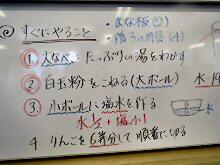 ◎ すぐにやること
・まな板(2)
① 大なべにたっぷりの湯をわかす
② 白玉粉をこねる(大ボール)
③ 小ボールに塩水を作る
水1/2+塩小1
4 りんごを6等分して順番に切る